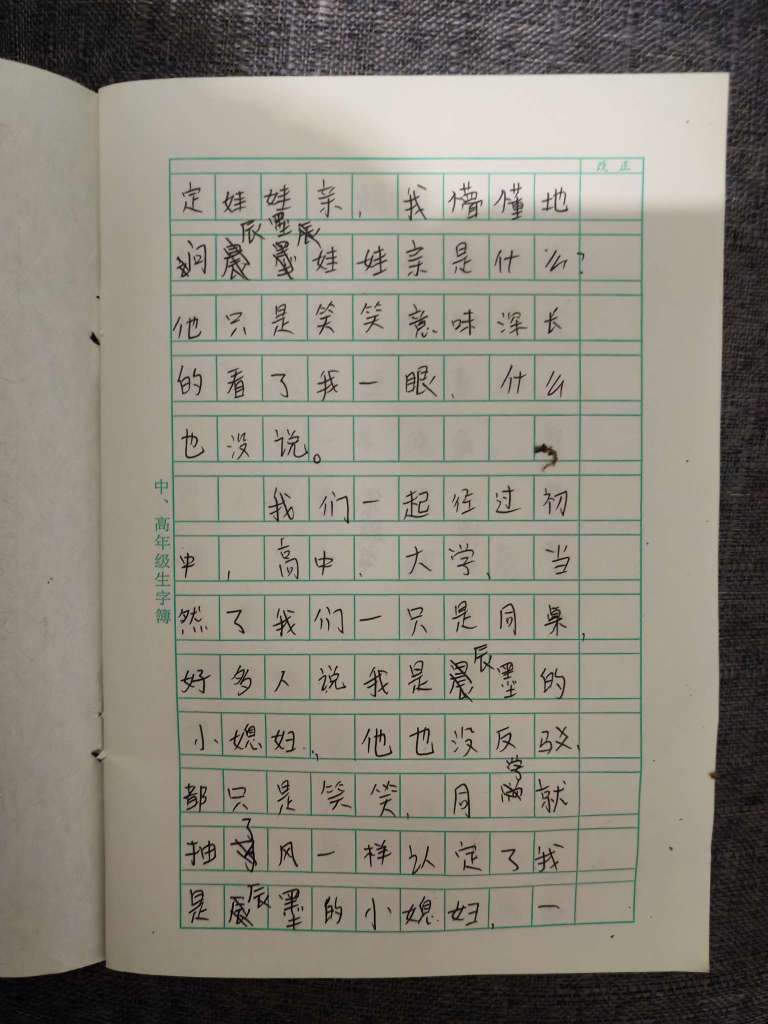 改正
定娃娃亲，我懵懂地
问辰墨辰娃娃亲是什么？
他只是笑笑意味深长
的看了我一眼、什么
也没说。
我们一起径过初
中，高中、大学、当
然了我们一只是同桌，
好多人说我是辰墨的
小媳妇，他也没反驳、
都只是笑笑，同学就
抽了风一样认定了我
是辰墨的小媳妇，一
中、高年级生字簿